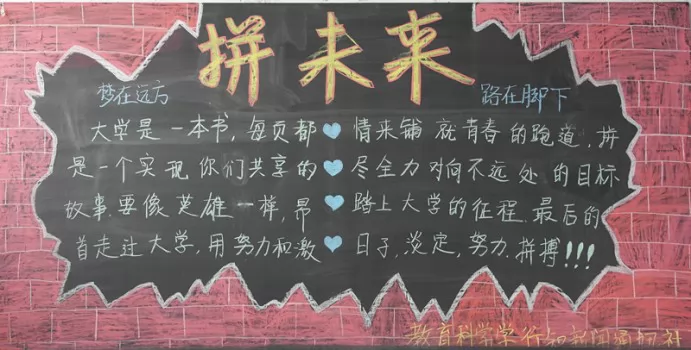 拼未来
梦在远方
路在脚下
大学是一本书，每页都
是一个实现你们共享的
故事.要像英雄一样，昂
首走过大学，用努力和激
情来铺就青春的跑道，拼
尽全力对向不远处的目标
踏上大学的征程.最后的
日子，淡定，努力.拼搏!!!
教育科学学行知新闻